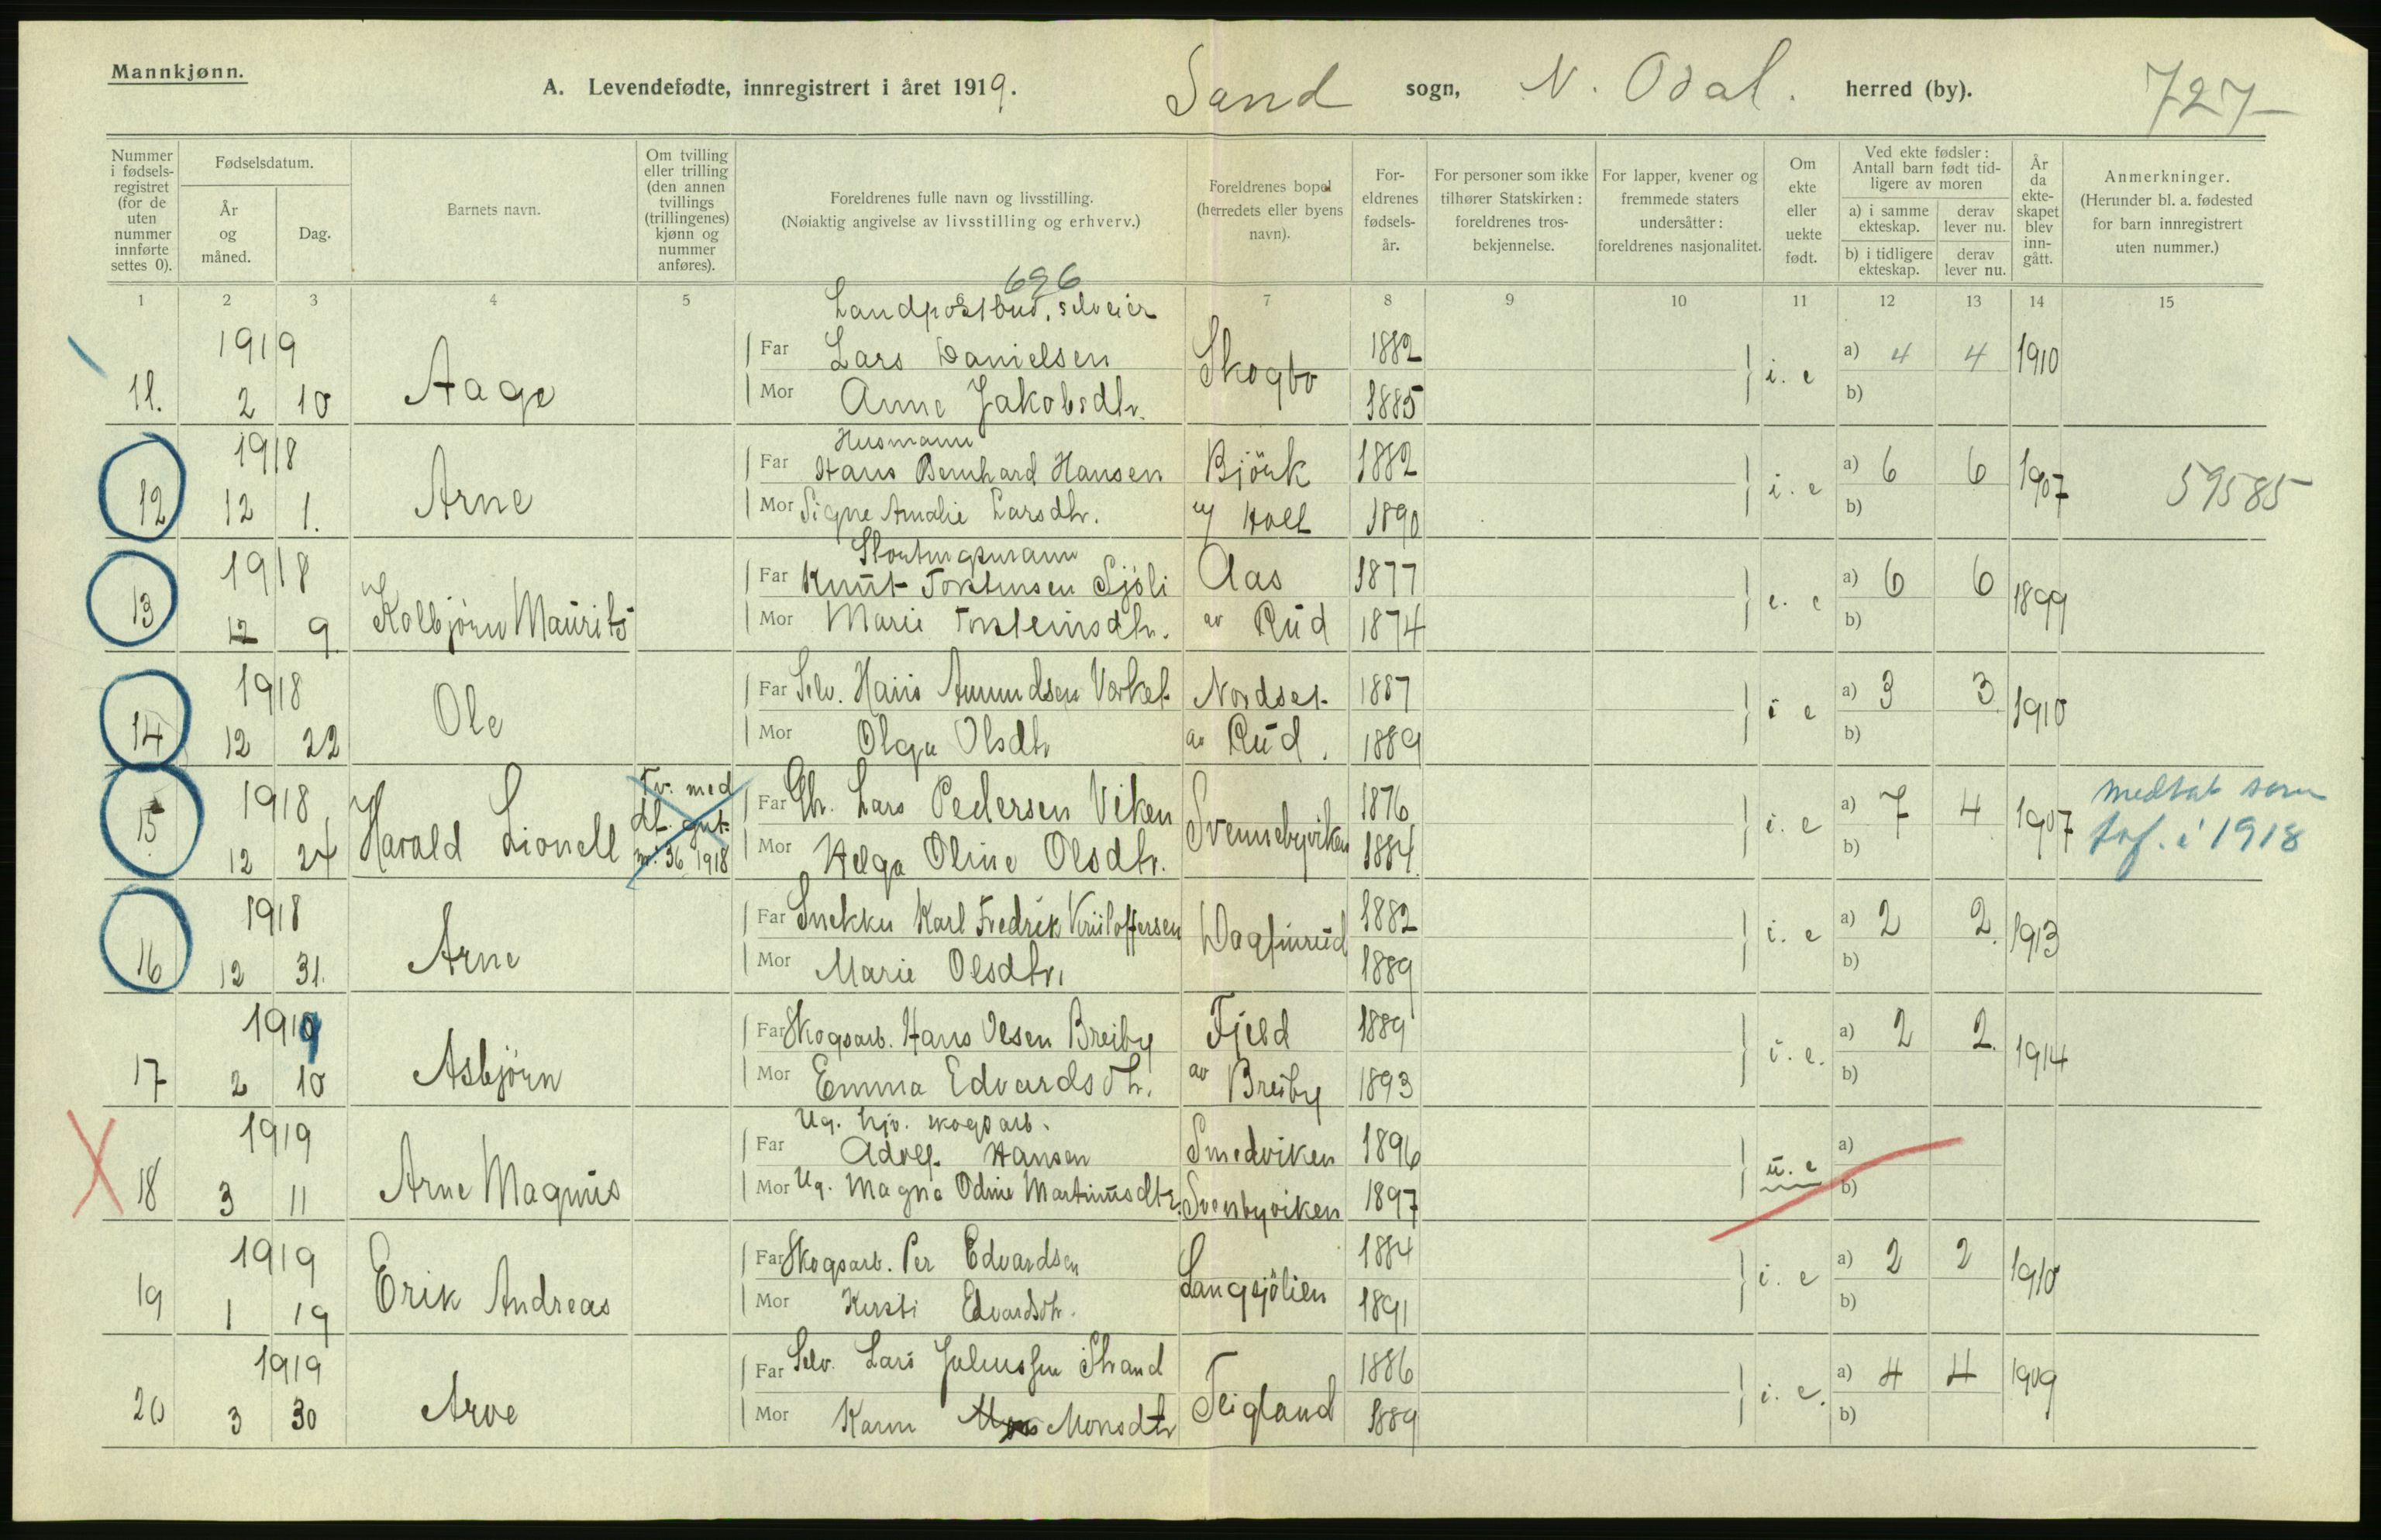 Mannkjønn.
A. Levendefødte, innregistrert i året 1919. Sand sogn, N. Odal. herred (by). 727
Nummer i fødsels-registret (for de uten nummer innførte settes 0).
Fødselsdatum.
År og måned.
Dag.
Barnets navn.
Om tvilling eller trilling (den annen tvillings (trillingenes) kjønn og nummer anføres).
Foreldrenes fulle navn og livsstilling.
(Nøiaktig angivelse av livsstilling og erhverv.)
Foreldrenes bopel (herredets eller byens navn).
For-eldrenes fødsels-år.
For personer som ikke tilhører Statskirken: foreldrenes tros-bekjennelse.
For lapper, kvener og fremmede staters undersåtter: foreldrenes nasjonalitet.
Om ekte eller uekte født.
Ved ekte fødsler: Antall barn født tid-ligere av moren
a) i samme ekteskap.
derav lever nu.
b) i tidligere ekteskap.
derav lever nu.
År da ekte-skapet blev inn-gått.
Anmerkninger.
(Herunder bl. a. fødested for barn innregistrert uten nummer.)
1 2 3 4 5 696 7 8 9 10 11 12 13 14 15
Landpostbud, selveier
1919 Far Lars Danielsen Skogbo 1882 i. e a) 4 4 1910
11. 2 10 Aage Mor Anne Jakobsdtr. 1885 b)
Husmann
1918 Far Hans Bernhard Hansen Björk 1882 i. e a) 6 6 1907 59585
12 12 1. Arne Mor Signe Amalie Larsdtr. Holt 1890 b)
Stortingsmann
1918 Far Knut Torstensen Sjöli Aas 1877 e. e a) 6 6 1899
13 12 9. Kolbjörn Mauritz Mor Marie Torsteinsdtr. av Rud 1874 b)
1918 Far Selv. Hans Amundsen Nordset 1887 i e a) 3 3 1910
14 12 22 Ole Mor Olga Olsdtr av Rud. 1889 b)
1918 Tv. med Far Lars Pedersen Viken Svennebyviken 1876 i. e a) 7 4 1907 medtat som
15 12 24 Harald Lionell df. gut nr. 36 1918 Mor Helga Oline Olsdtr. 1884. b) i 1918
1918 Far Snekker Karl Fredrik Kristoffersen Dagfinrud 1882 i. e a) 2 2. 1913
16 12 31. Arne Mor Marie Olsdtr. 1889 b)
1919 Far Skogsarb. Hans Olsen Breiby Fjeld 1889 i. e. a) 2 2. 1914
17 2 10 Asbjörn Mor Emma Edvardsdtr. av Breiby 1893 b)
Ug. hjv. skogsarb.
1919 Far Adolf Hansen Smedviken 1896 u. e a)
18 3 11 Arne Magnus Mor Ug. Magna Odine Martinusdtr. Svenbyviken 1897 b)
1919 Far Skogsarb. Per Edvardsen Langsjölien 1884 i. e a) 2 2 1910
19 1 19 Erik Andreas Mor Kersti Edvardsdtr. 1891 b)
1919 Far Selv. Lars Juliussen Strand Teigland 1886 i. e. a) 4 4 1909
20 3 30 Arve Mor Karen Monsdtr 1889 b)